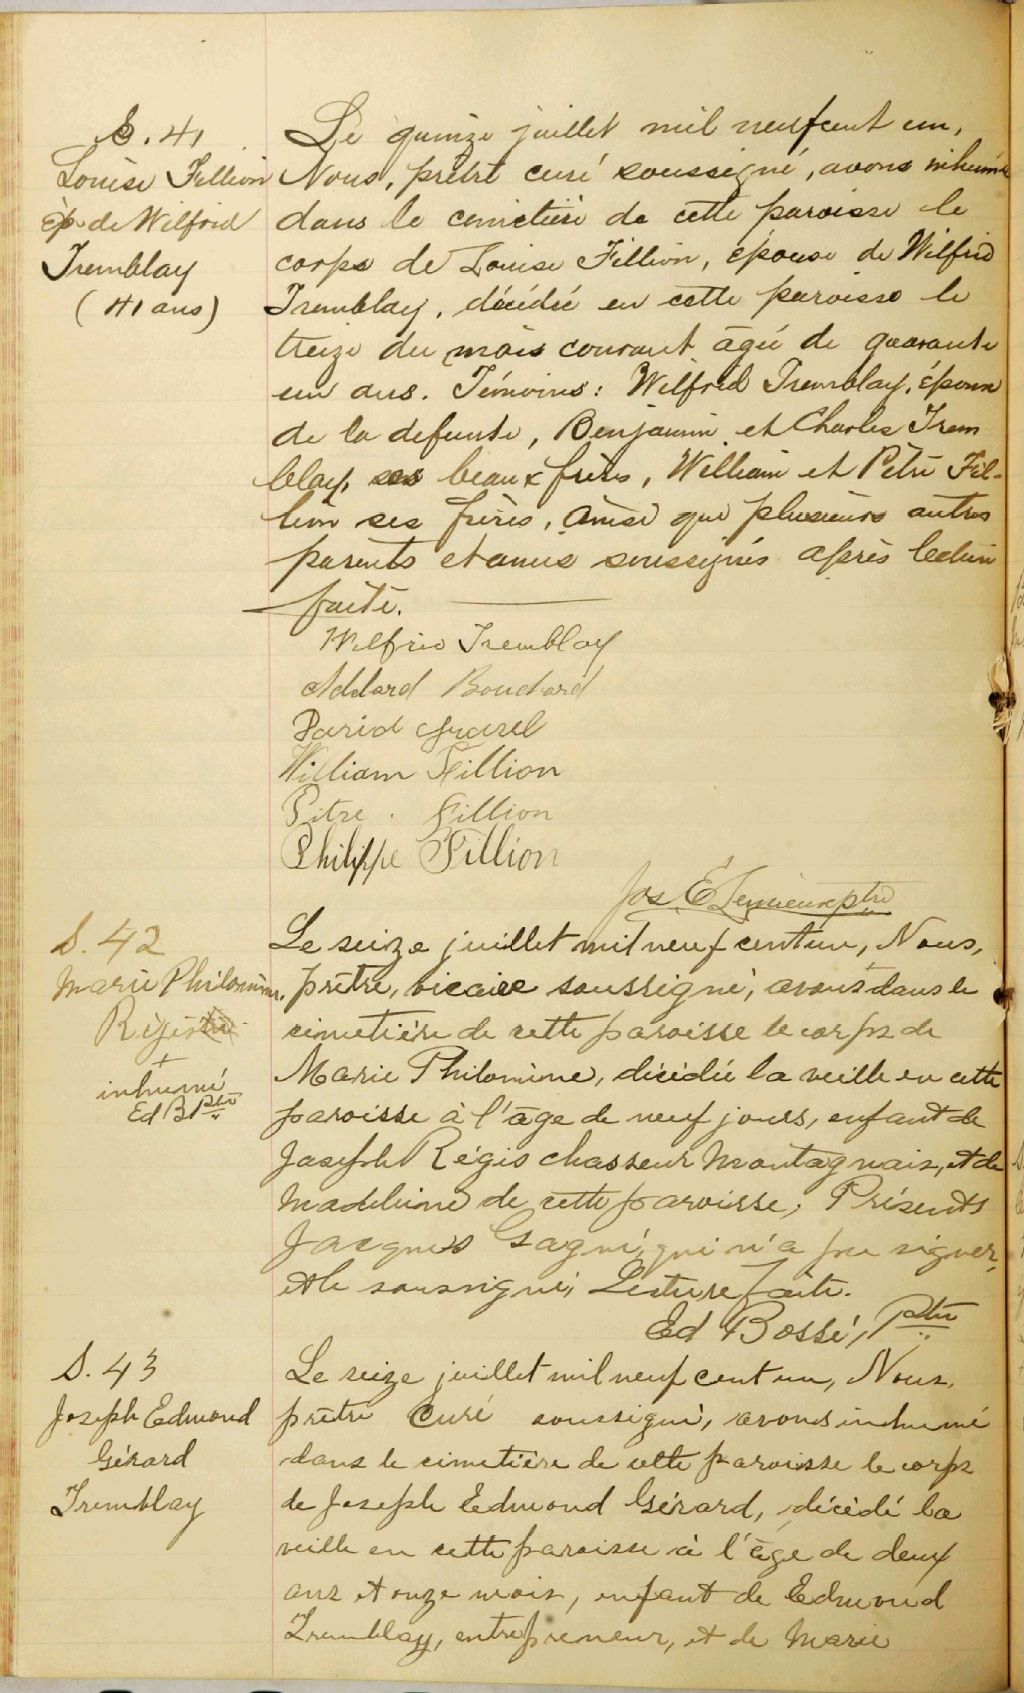 S. 41
Louise Fillion
ép. de Wilfrid
Tremblay
(41 ans)
Le quinze juillet mil neuf cent un,
Nous, prêtre curé soussigné, avons inhumé
dans le cimetière de cette paroisse le
corps de Louise Fillion, épouse de Wilfrid
Tremblay, décédée en cette paroisse le
treize du mois courant âgée de quarante
un ans. Témoins: Wilfrid Tremblay, époux
de la defunte, Benjamin et Charles Trem
blay, ses beaux frères, William et Pitre Fil-
lion ses frères, ainsi que plusieurs autres
parents et amis soussignés après lecture
faite.
Wilfrid Tremblay
Adélard Bouchard
David Gravel
William Fillion
Pitre . Fillion
Philippe Fillion
Jos. E. Lemieux ptre
S. 42
Marie Philomène
Régis
+
inhumé
Ed B Ptre
Le seize juillet mil neuf cent un, Nous,
prêtre, vicaire soussigné, avons + dans le
cimetière de cette paroisse le corps de
Marie Philomène, décédée la veille en cette
paroisse à l'âge de neuf jours, enfant de
Joseph Régis chasseur Montagnais, et de
Madeleine de cette paroisse, Présents
Jacques Gagné, qui n'a pu signer,
et le soussigné, Lecture faite.
Ed Bossé, Ptre
S. 43
Joseph Edmond
Gérard
Tremblay
Le seize juillet mil neuf cent un, Nous,
prêtre Curé soussigné, avons inhumé
dans le cimetière de cette paroisse le corps
de Joseph Edmond Gérard, décédé la
veille en cette paroisse à l'âge de deux
ans et onze mois, enfant de Edmond
Tremblay, entrepreneur, et de Marie